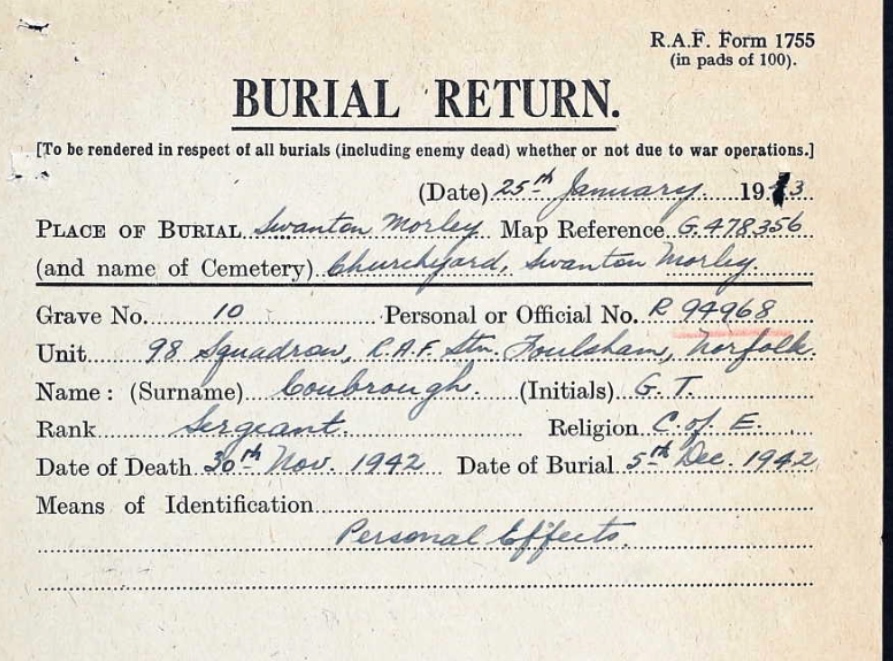 R.A.F. Form 1755
(in pads of 100).
BURIAL RETURN.
[To be rendered in respect of all burials (including enemy dead) whether or not due to war operations.]
(Date) 25th January 1943
PLACE OF BURIAL Swanton Morley Map Reference G.478356
(and name of Cemetery) Churchyard, Swanton Morley
Grave No. 10 Personal or Official No. R 94968
Unit 98 Squadron, R.A.F. Stn. Foulsham, Norfolk.
Name: (Surname) Coubrough. (Initials) G. T.
Rank Sergeant. Religion C. of E.
Date of Death 30th Nov. 1942 Date of Burial 5th Dec. 1942
Means of Identification
Personal Effects.